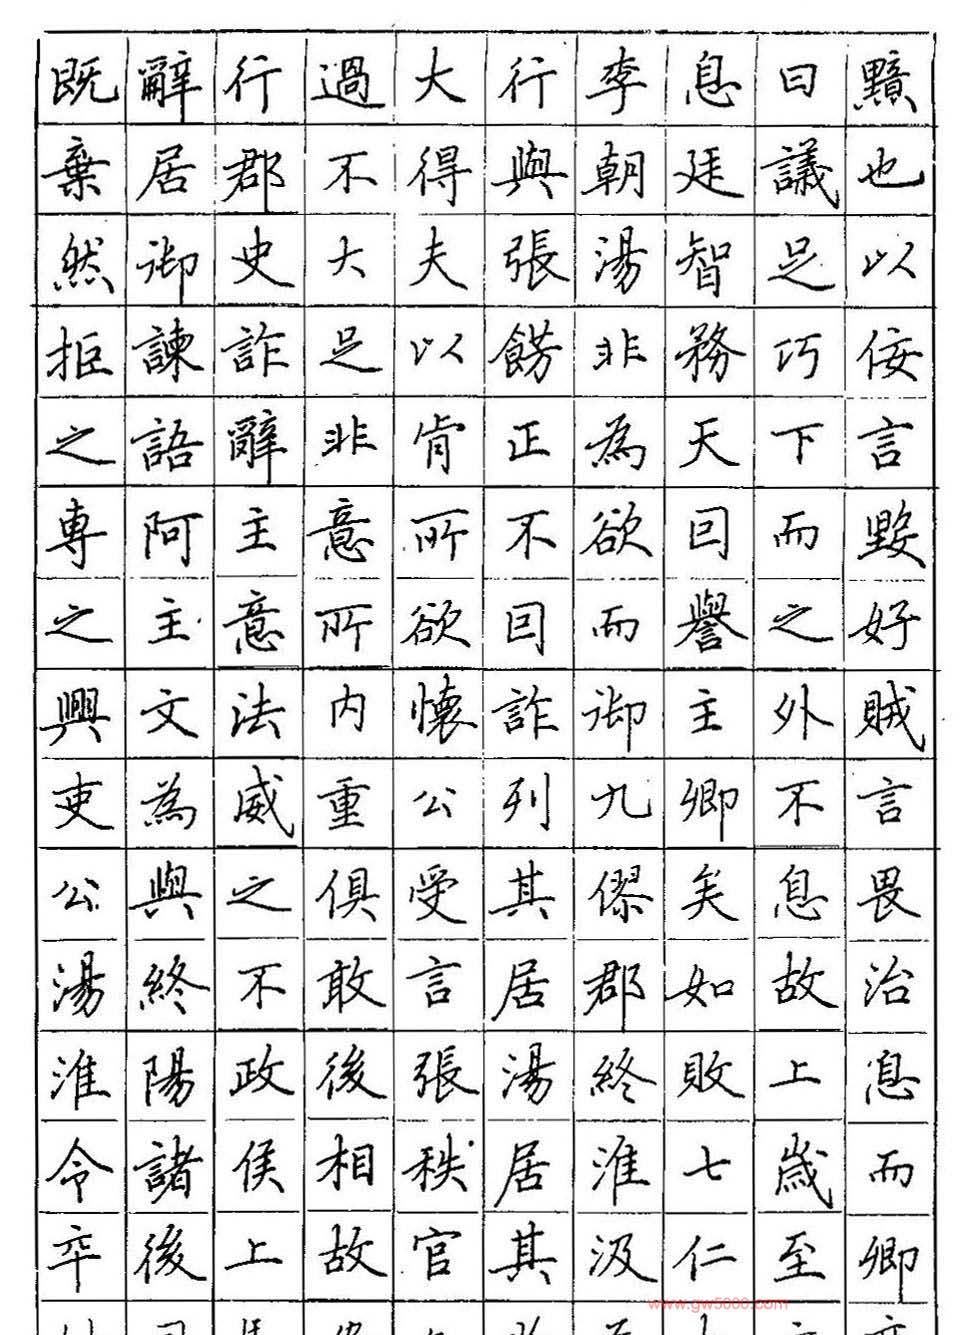 既辭行過大行李息曰黯
棄居郡不得與朝廷議也
然御史大夫張湯智足以
拒諫詐足以飾非務巧佞
之語辭非肯正為天下言
專阿主意所不欲囙而毀
之主意所欲囙而譽之好
興文法內懷詐御主外賊
吏為威重公列九卿不言
公與之俱受其僇矣息畏
湯終不敢言居郡如故治
淮陽政後張湯終敗上息
令諸侯相秩居淮七歲而
卒後上故官其汲仁至卿
www.gw5000.com